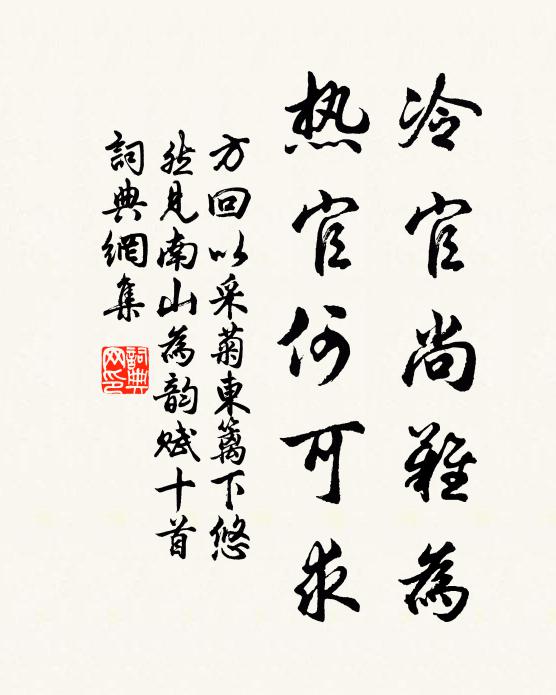 冷官尚難為
热官何可求
方回以采菊東籬下悠
然見南山為韵賦十首
詞典網集
詞典网印